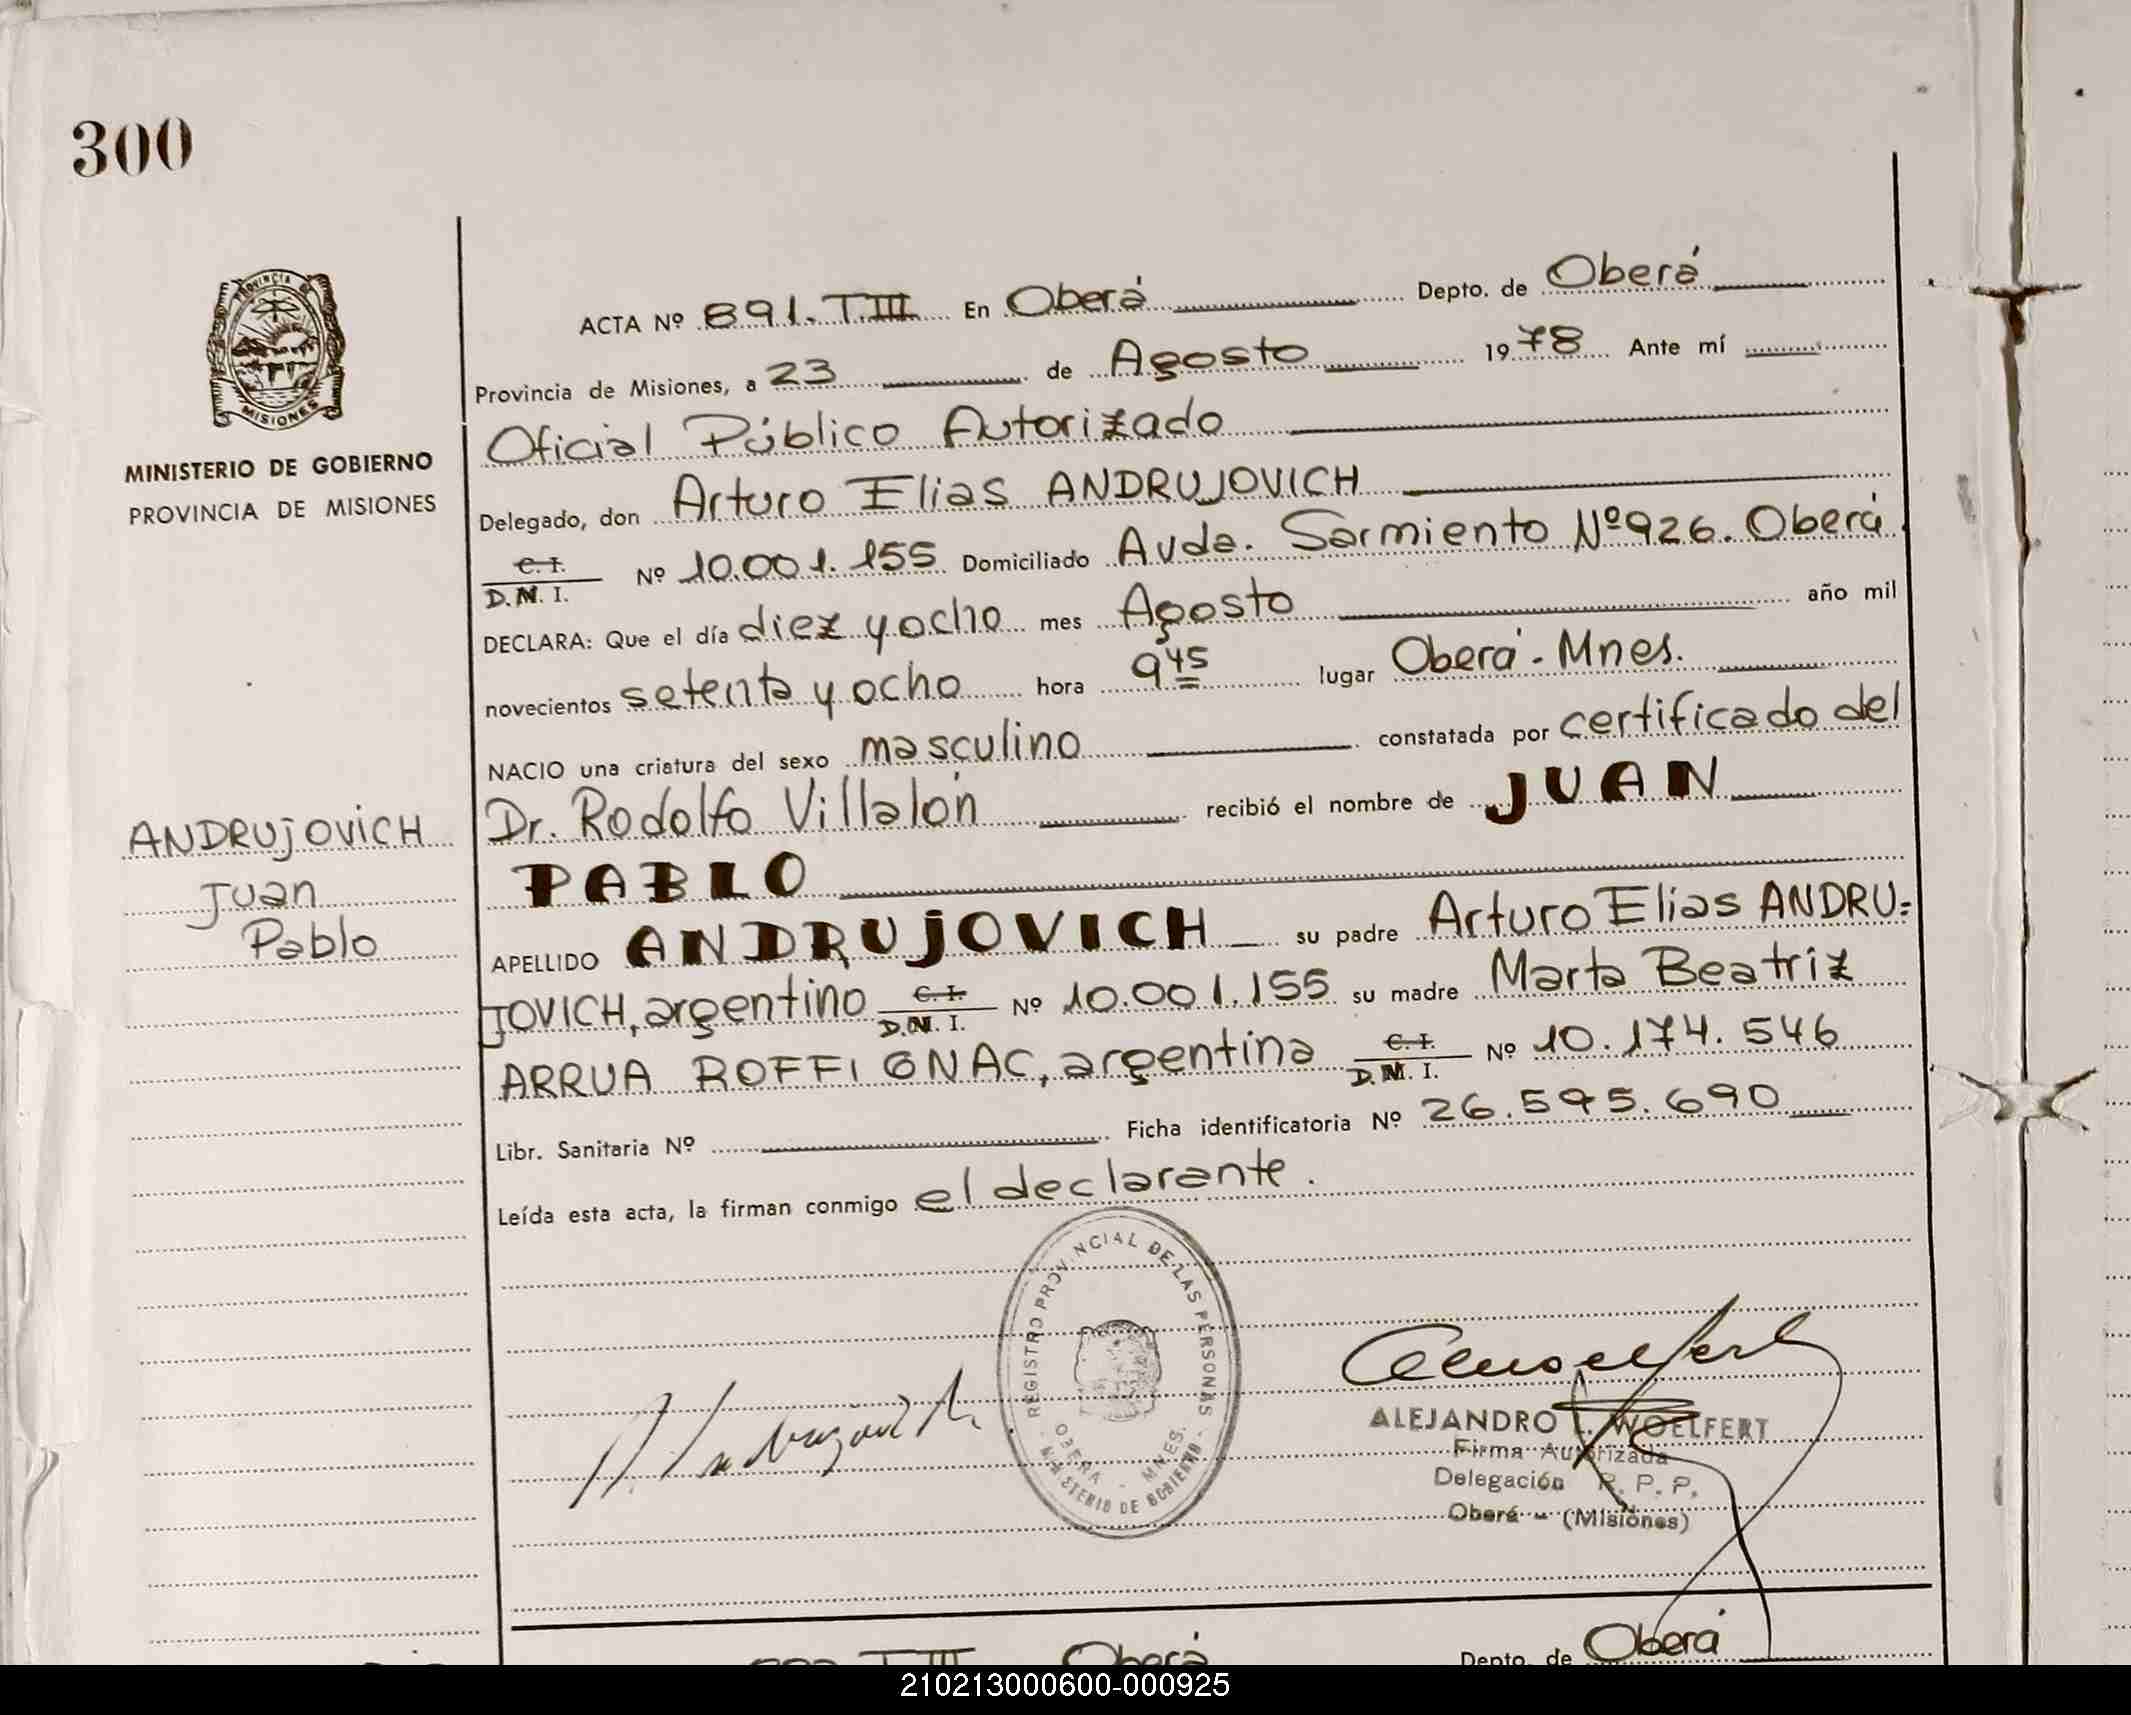 300
PROVINCIA DE
MISIONES
MINISTERIO DE GOBIERNO
PROVINCIA DE MISIONES
ANDRUJOVICH
Juan
Pablo
ACTA Nº 891. T. III En Oberá Depto. de Oberá
Provincia de Misiones, a 23 de Agosto 1978 Ante mí
Oficial Público Autorizado
Delegado, don Arturo Elias ANDRUJOVICH
C. I.
D. N. I. Nº 10.001.155 Domiciliado Avda. Sarmiento Nº 926. Oberá.
DECLARA: Que el día diez y ocho mes Agosto año mil
novecientos setenta y ocho hora 9 45 lugar Oberá - Mnes.
NACIO una criatura del sexo masculino constatada por certificado del
Dr. Rodolfo Villalón recibió el nombre de JUAN
PABLO
APELLIDO ANDRUJOVICH su padre Arturo Elias ANDRU=
JOVICH, argentino C. I. D. N. I. Nº 10.001.155 su madre Marta Beatriz
ARRUA ROFFIGNAC, argentina C. I. D. N. I. Nº 10.174.546
Libr. Sanitaria Nº Ficha identificatoria Nº 26.595.690
Leída esta acta, la firman conmigo el declarante.
REGISTRO PROVINCIAL DE LAS PERSONAS
OBERA - MNES.
MINISTERIO DE GOBIERNO
ALEJANDRO L. WOELFERT
Firma Autorizada
Delegación R. P. P.
Oberá - (Misiones)
T III Oberá Depto. de Oberá
210213000600-000925